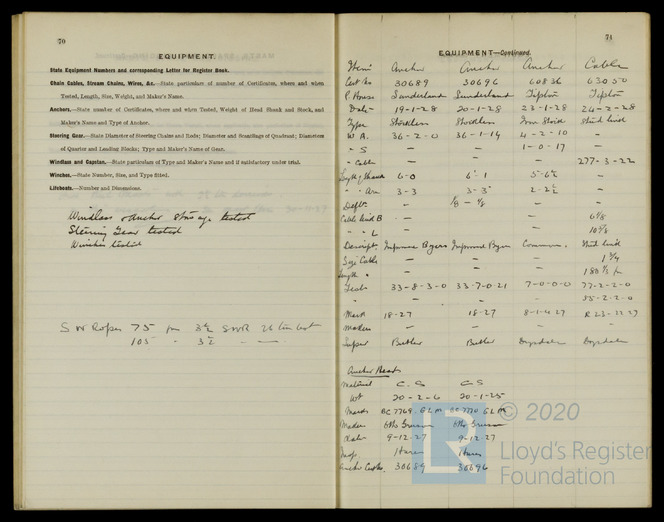 70
EQUIPMENT.
State Equipment Numbers and corresponding Letter for Register Book.
Chain Cables, Stream Chains, Wires, &c.—State particulars of number of Certificates, where and when
Tested, Length, Size, Weight, and Maker's Name.
Anchors.—State number of Certificates, where and when Tested, Weight of Head Shank and Stock, and
Maker's Name and Type of Anchor.
Steering Gear.—State Diameter of Steering Chains and Rods; Diameter and Scantlings of Quadrant; Diameters
of Quarter and Leading Blocks; Type and Maker's Name of Gear.
Windlass and Capstan.—State particulars of Type and Maker's Name and if satisfactory under trial.
Winches.—State Number, Size, and Type fitted.
Lifeboats.—Number and Dimensions.
Windlass & Anchor tested
Steering Gear tested
Winches tested
S W Ropes 75 fm 3½ SWR 26
105 " 3½ —
71
EQUIPMENT—Continued.
Item Anchor Anchor Anchor Cable
Cert No 30689 30696 60836 63050
P. House Sunderland Sunderland Tipton Tipton
Date 19-1-28 20-1-28 23-1-28 24-2-28
Type Stockless Stockless Iron Stock Stud link
W. A. 36-2-0 36-1-14 4-2-10 -
" S - - 1-0-17 -
" Cable - - - 277-3-22
Length of Shank 6-0 6-1 5-6½ -
" " Arm 3-3 3-3 2-2½ -
Deft.
Cable link B - - -
" " L - - -
Descript. Improved Byers Improved Byers Common. Stud link
Size Cable - - - 1¾
Length " - - -
Test 33-8-3-0 33-7-0-21 7-0-0-0 77-2-2-0
" 55-2-2-0
Mark 18-27 18-27
Maker - - - -
Super Butler Butler Drysdale Drysdale
Anchor Heads
Material C.S C S
Wt 20-2-6 20-1-25
Marks
Maker
Date 9-12-27 9-12-27
Insp.
Anchor Certfs. 30689 30696
LR © 2020
Lloyd's Register
Foundation